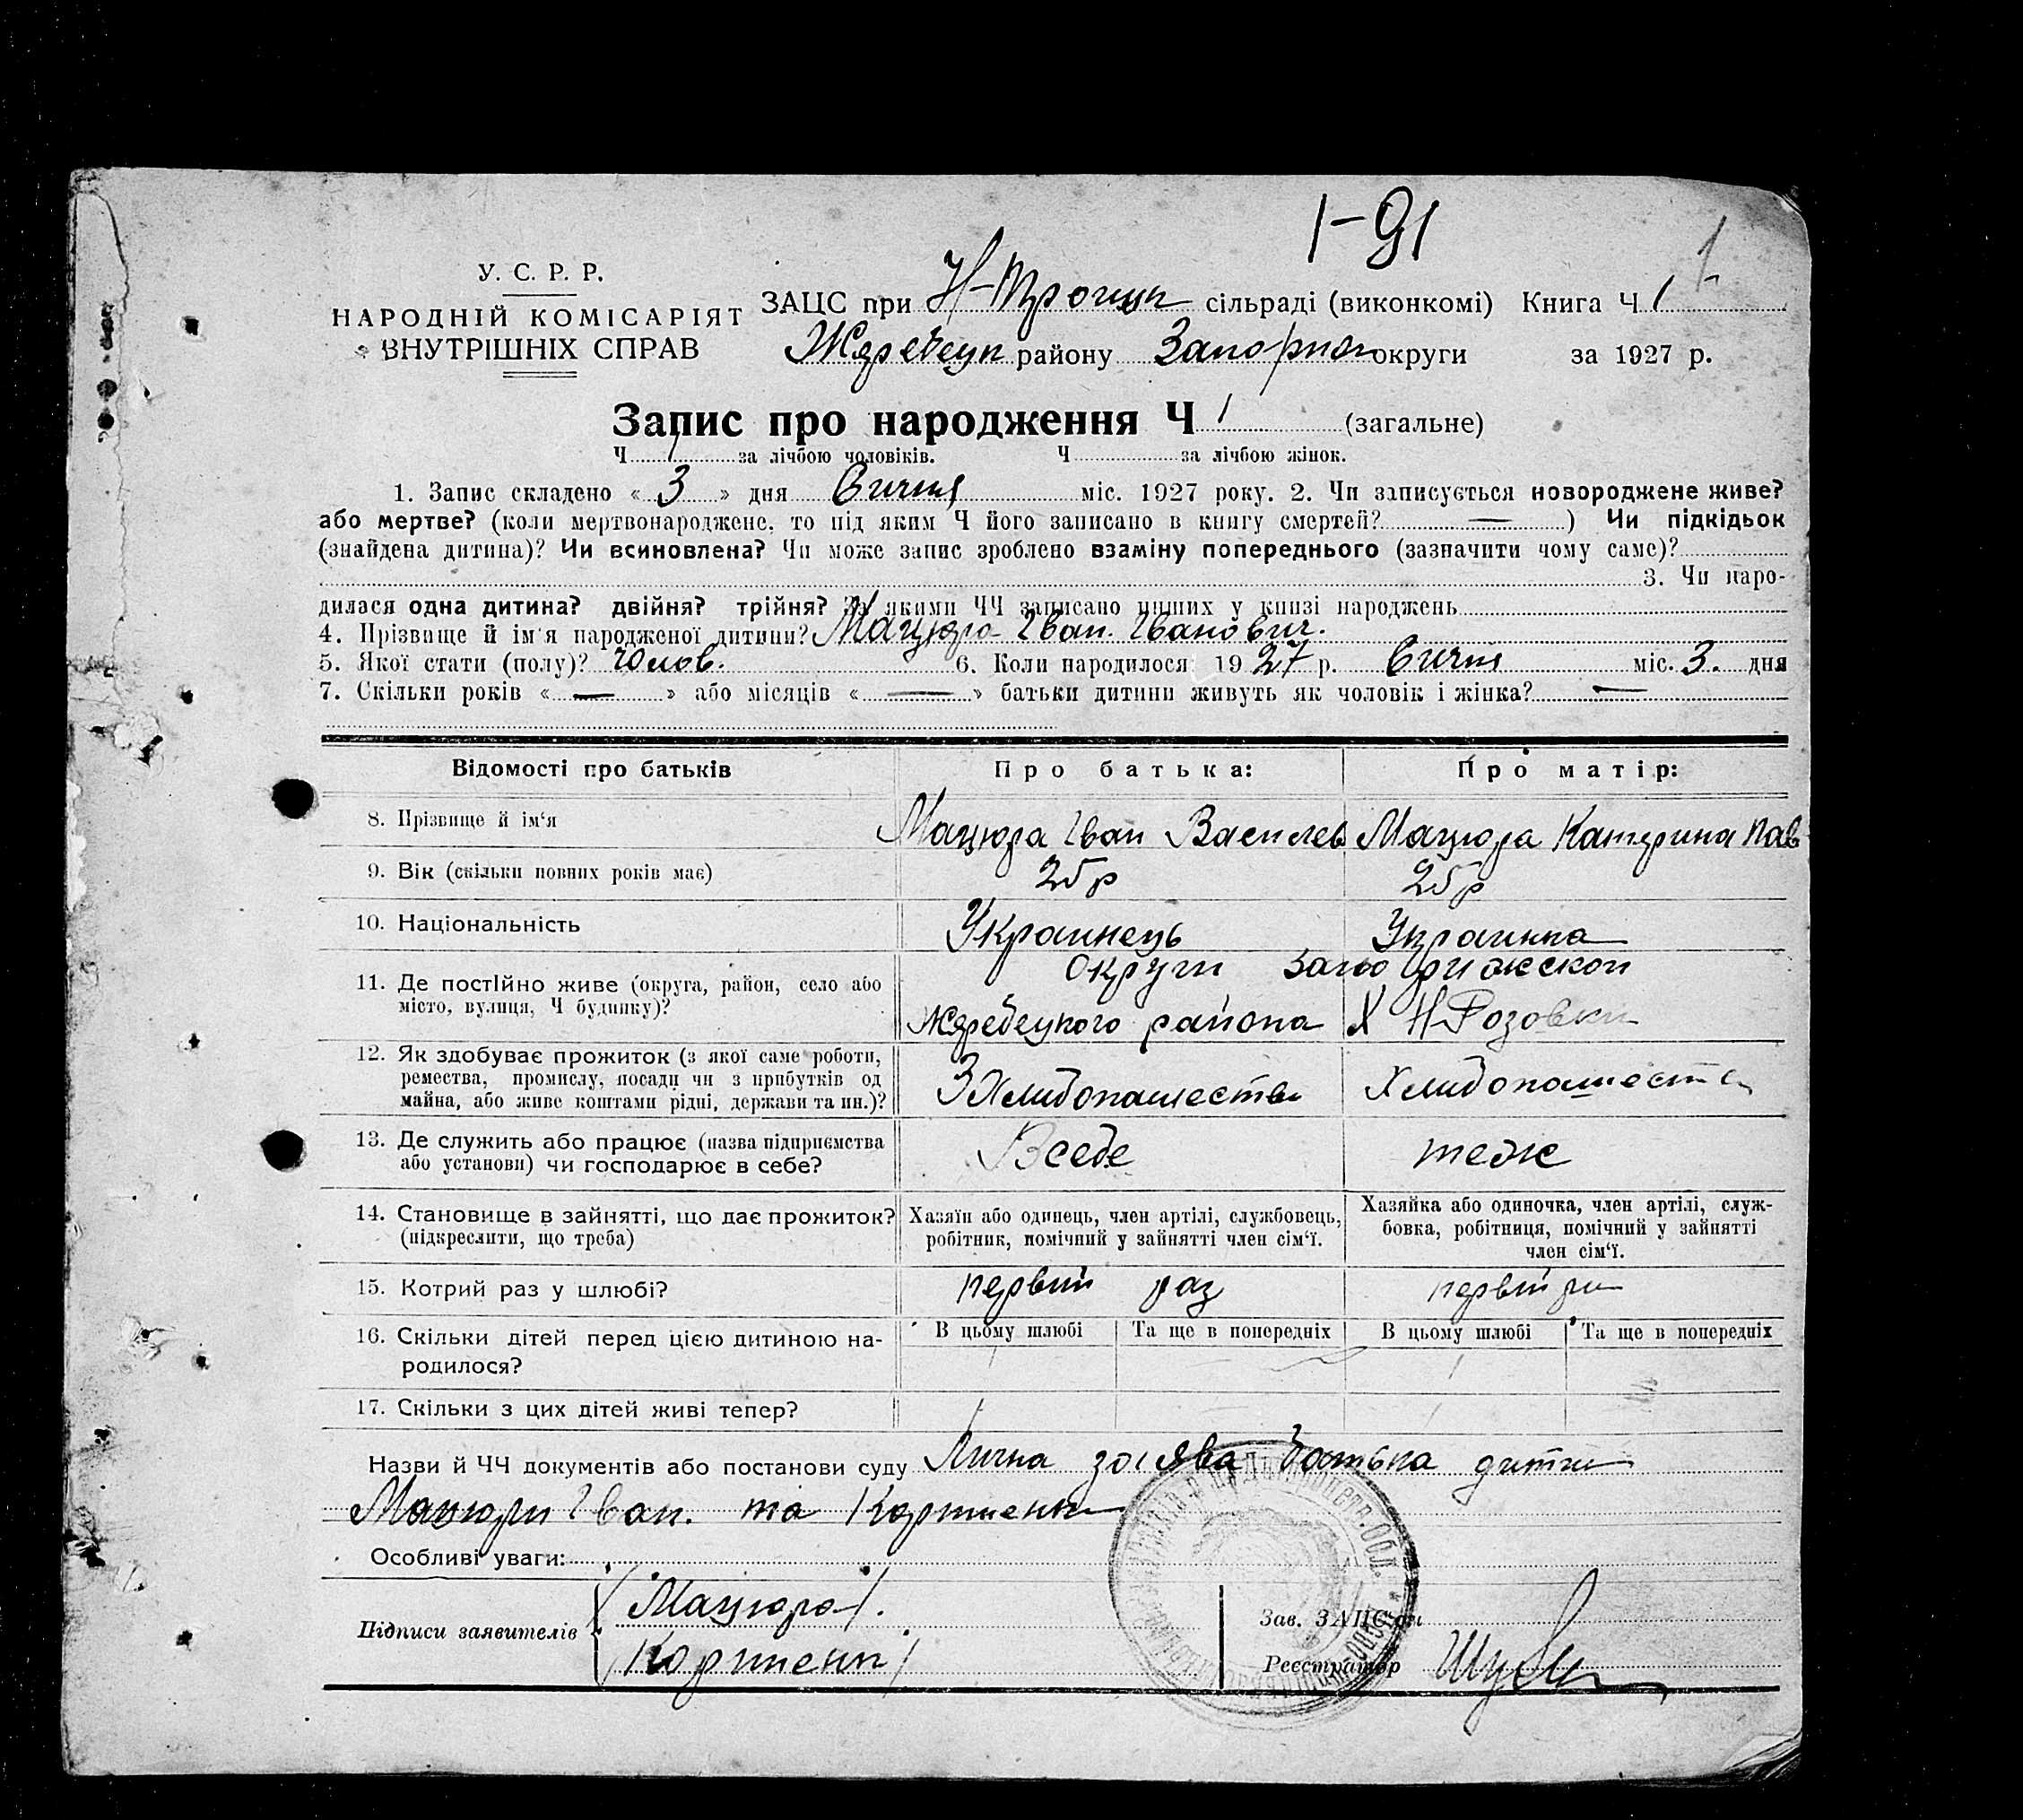 1-91
1
У. С. Р. Р.
НАРОДНІЙ КОМІСАРІЯТ
ВНУТРІШНІХ СПРАВ
ЗАЦС при Н-Троицк сільраді (виконкомі) Книга Ч 1
Жеребецк району Запориж округи за 1927 р.
Запис про народження Ч 1 (загальне)
Ч 1 за лічбою чоловіків. Ч за лічбою жінок.
1. Запис складено « 3 » дня Сичня міс. 1927 року. 2. Чи записується новороджене живе?
або мертве? (коли мертвонароджене, то під яким Ч його записано в книгу смертей? — ) Чи підкідьок
(знайдена дитина)? Чи всиновлена? Чи може запис зроблено взаміну попереднього (зазначити чому саме)?
3. Чи наро-
дилася одна дитина? двійня? трійня? За якими ЧЧ записано инших у книзі народжень
4. Прізвище й ім'я народженої дитини? Мацюра Іван. Іванович.
5. Якої стати (полу)? Чолов. 6. Коли народилося 1927 р. Сичня міс. 3. дня
7. Скільки років « — » або місяців « — » батьки дитини живуть як чоловік і жінка? —
Відомості про батьків Про батька: Про матір:
8. Прізвище й ім'я Мацюра Іван Василев Мацюра Катерина Пав
9. Вік (скільки повних років має) 25 р 25 р
10. Національність Украинець Украинка
11. Де постійно живе (округа, район, село або місто, вулиця, Ч будинку)? Округи Запорижской
Жеребецкого района Х Н Розовки
12. Як здобуває прожиток (з якої саме роботи,
ремества, промислу, посади чи з прибутків од
майна, або живе коштами рідні, держави та ин.)? З Хлибопашества Хлибопашества
13. Де служить або працює (назва підприємства
або установи) чи господарює в себе? В себе теж
14. Становище в зайнятті, що дає прожиток?
(підкреслити, що треба)
Хазяїн або одинець, член артілі, службовець,
робітник, помічний у зайнятті член сім'ї.
Хазяйка або одиночка, член артілі, служ-
бовка, робітниця, помічний у зайнятті
член сім'ї.
15. Котрий раз у шлюбі? первий раз первий раз
16. Скільки дітей перед цією дитиною на-
родилося?
В цьому шлюбі Та ще в попередніх В цьому шлюбі Та ще в попередніх
1 1
17. Скільки з цих дітей живі тепер? 1 1
Назви й ЧЧ документів або постанови суду Лична заява батька дитини
Мацюри Іван. та
Особливі уваги:
Підписи заявителів
/Мацюра/.
Зав. ЗАЦС'ом
Реєстратор